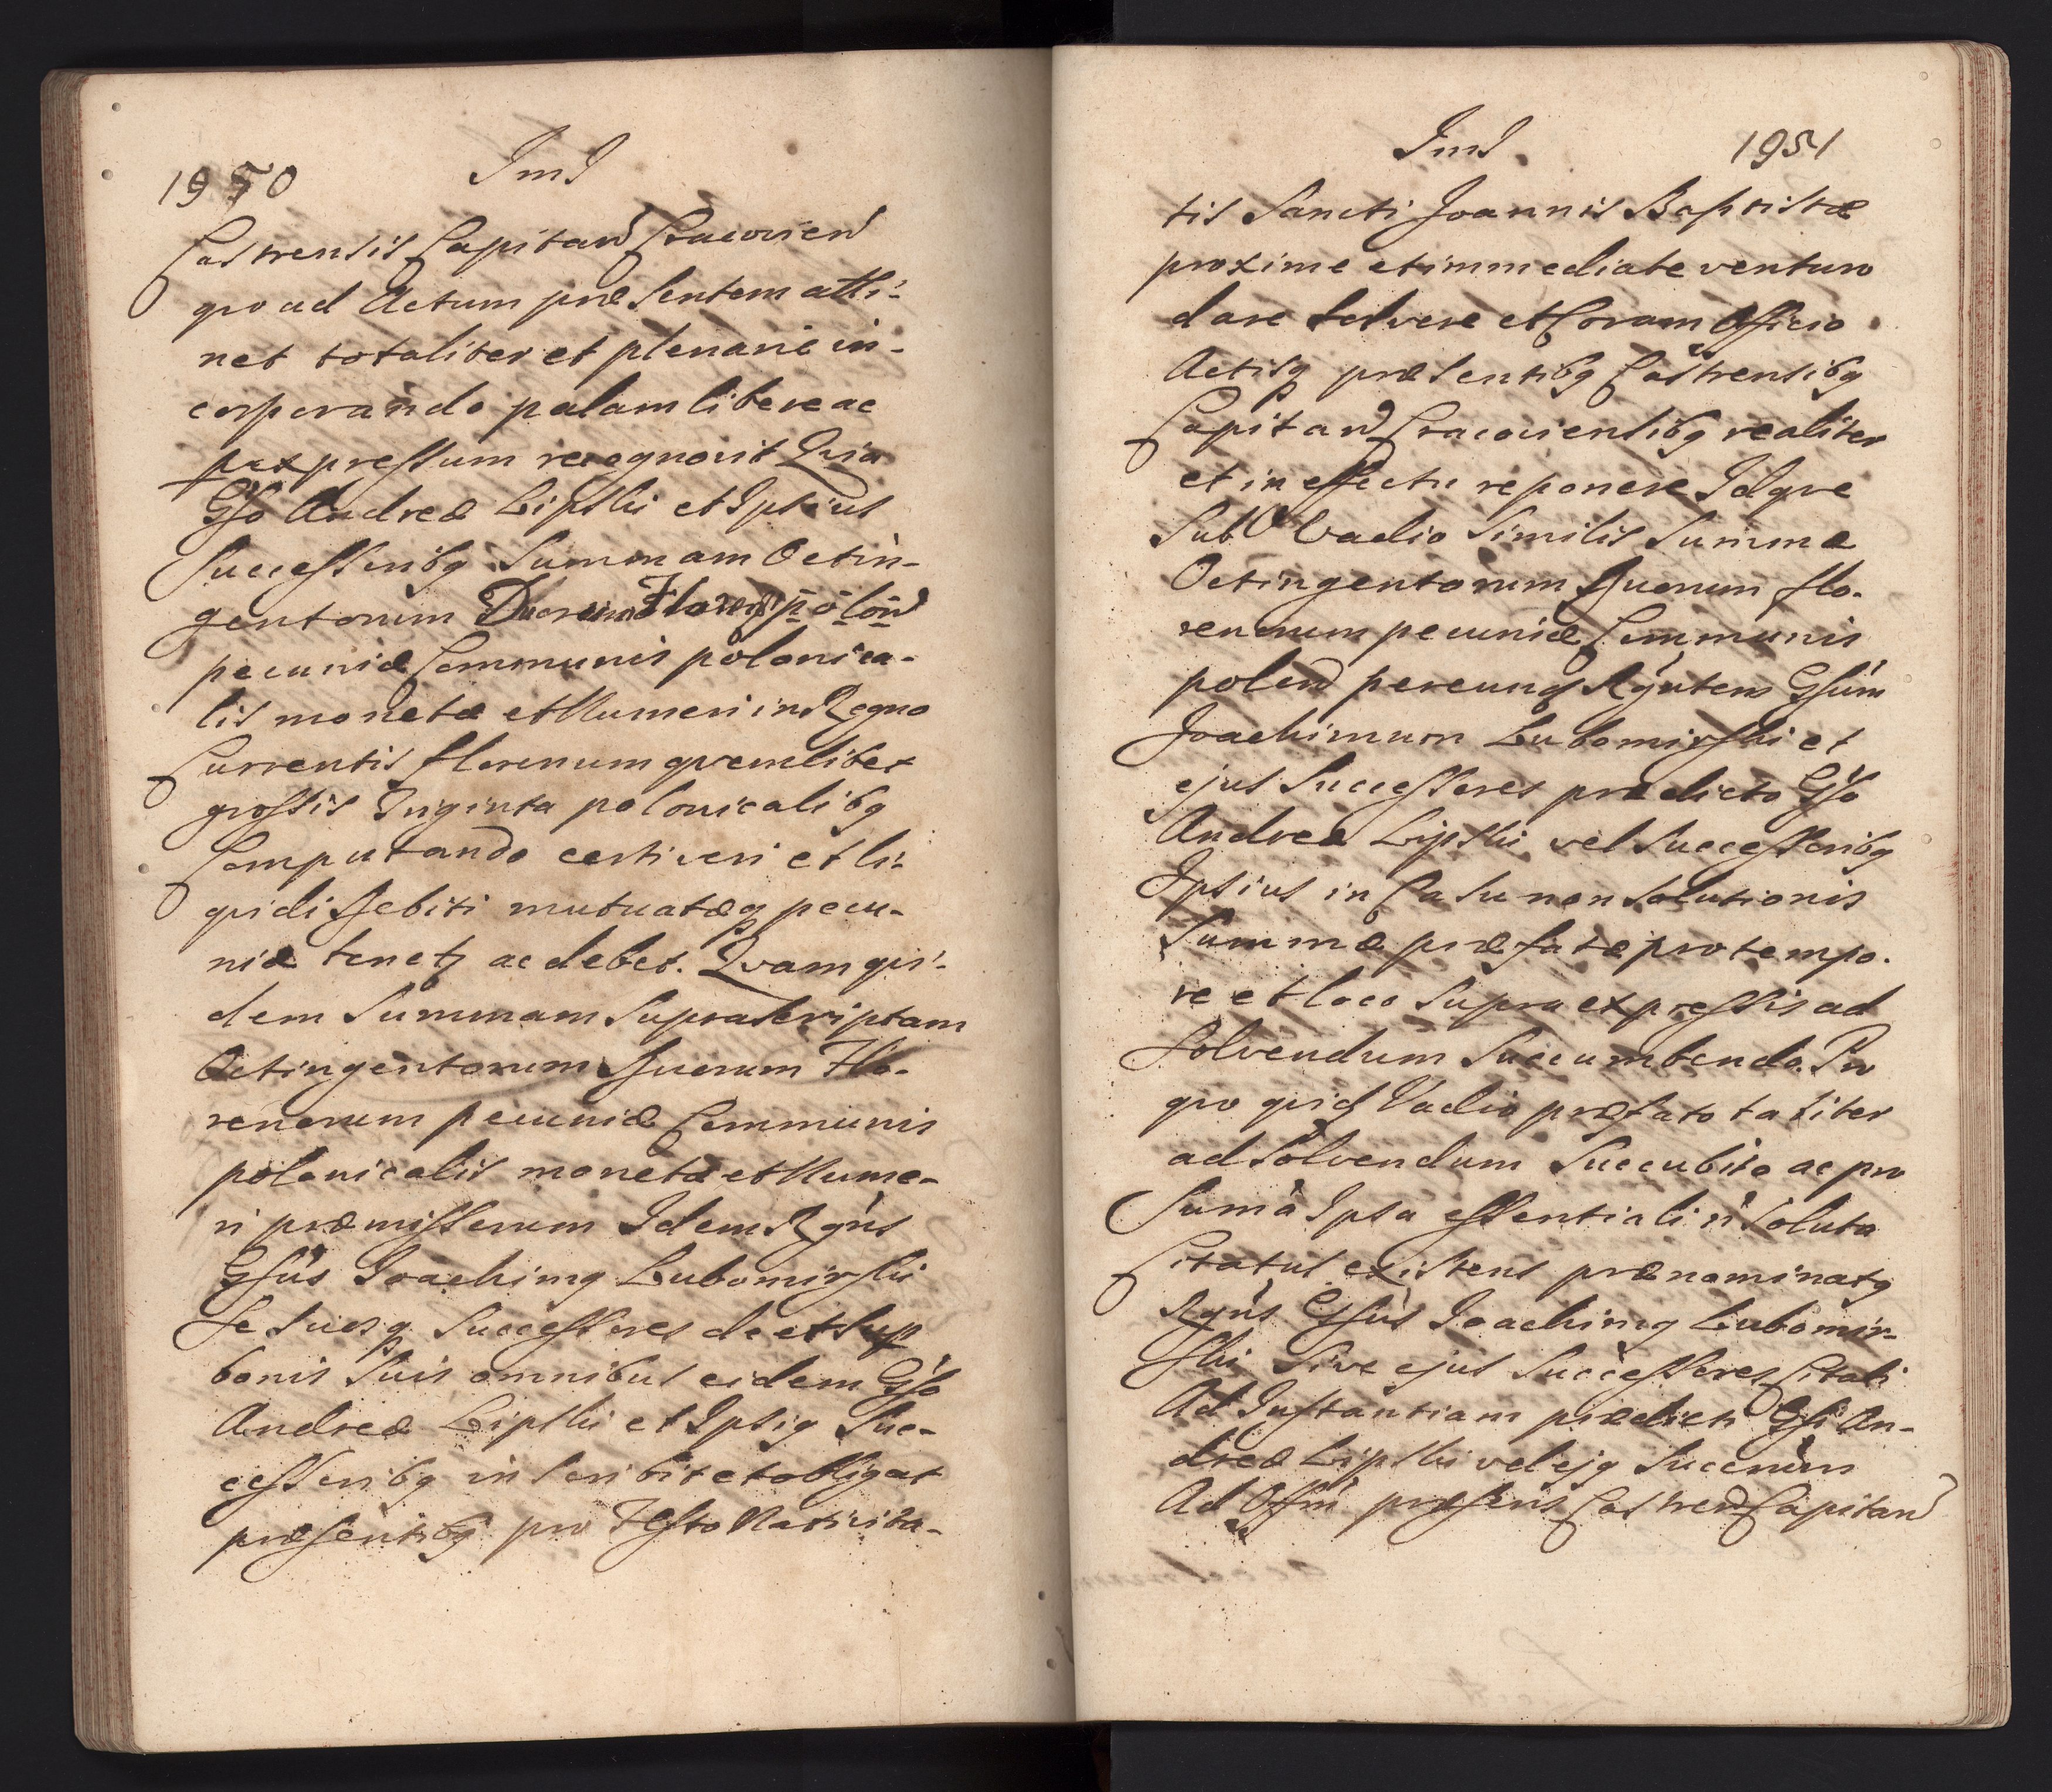 1950
Ind
Castrensis Capitan Cracovien
quo ad Actum præsentem atti-
net totaliter et plenarie in-
corporando palam libere ac
p expressum recognovit Quia
Gso Andreæ Lipski et Ipsius
Successoribg Summam Octin-
gentorum Duorum Floren polon
pecuniæ Communis polonica-
lis monetæ et Numeri in Regno
Currentis florenum quemlibet
grossis Triginta polonicalibg
Computando certi veri et li-
quidi Debiti mutuatæq pecu-
niæ tenetz ac debet. Quam qui-
dem Summam Suprascriptam
Octingentorum Duorum Flo-
renorum pecuniæ Communis
polonicalis monetæ et Nume-
ri præmissorum Idem Rgns
Gsus Joachimg Lubomirski
Se Suosq Successores de et Sup
bonis Suis omnibus eidem Gso
Andreæ Lipski et Ipsig Suc-
cessoribg inscribit et obligat
præsentibg pro Festo Nativita-
Ind
1951
tis Sancti Joannis Baptistæ
proxime et immediate venturo
dare Solvere et Coram Officio
Actisq præsentibg Castrensibg
Capitan Cracoviensibg realiter
et in effectu reponere Idque
Sub Vadio Similis Summæ
Octingentorum Duorum flo-
renorum pecuniæ Communis
polon per eunq Rgntem Gsum
Joachimum Lubomirski et
ejus Successores prædicto Gso
Andreæ Lipski vel Successoribg
Ipsius in Casu non Solutionis
Summæ præfatæ pro tempo-
re et loco Supra expressis ad
Solvendum Succumbendo. Pro
quo quid Vadio præfato taliter
ad Solvendum Succubito ac pro
Suma Ipsa essentiali ñ Soluta
Citatus existens prænominatg
Rgns Gsus Joachimg Lubomir-
ski Sive ejus Successores Citati
Ad Instantiam prædicti Gsi An-
dreæ Lipski vel ejg Succrum
Ad Offm præsens Castren Capitan